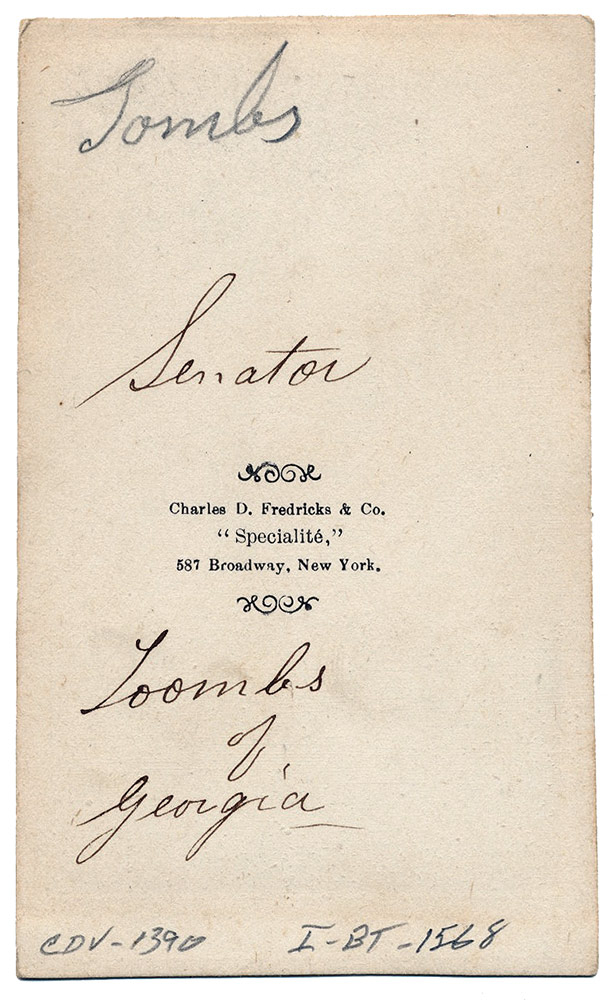 Tombs
Senator
Charles D. Fredricks & Co.
"Specialité,"
587 Broadway, New York.
Toombs
of
Georgia
CDV-1390 I-BT-1568